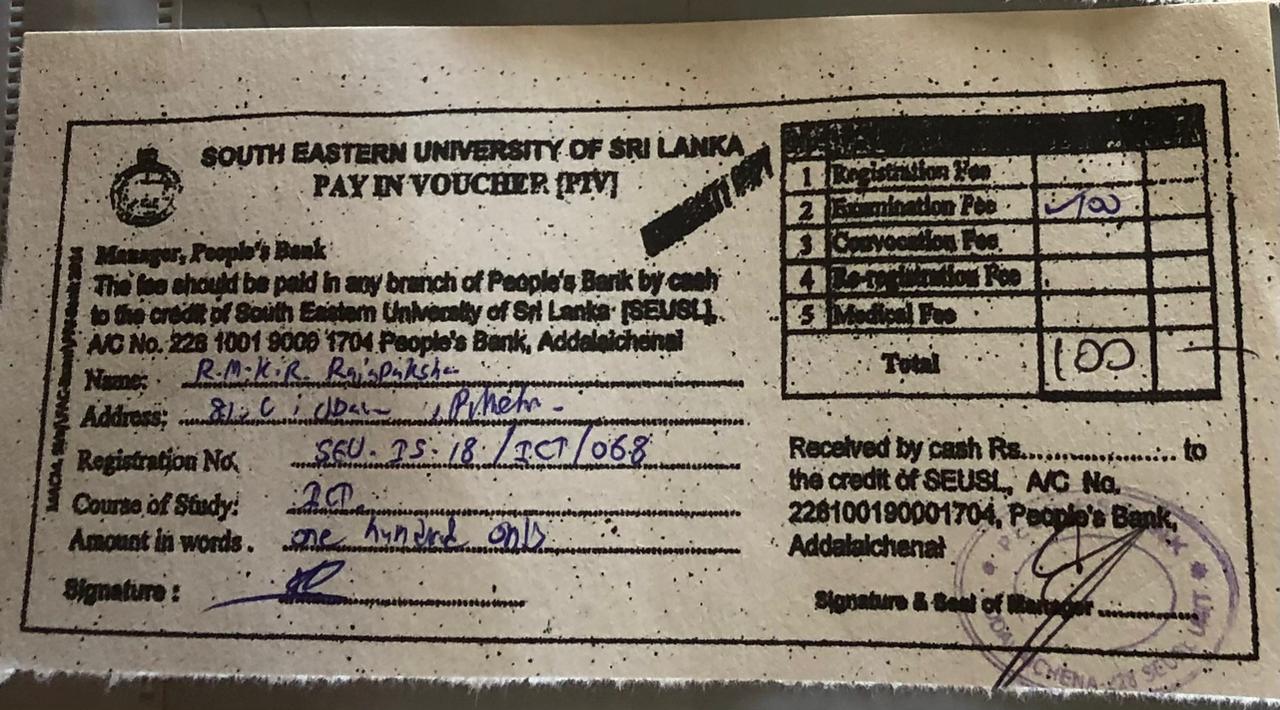 SOUTH EASTERN UNIVERSITY OF SRI LANKA
PAY IN VOUCHER [PIV]
Manager, People's Bank
The fee should be paid in any branch of People's Bank by cash
to the credit of South Eastern University of Sri Lanka [SEUSL],
A/C No. 228 1001 9000 1704 People's Bank, Addalaichenai
Name: R.M.K.R. Rajapaksha
Address:
Registration No. SEU.IS.18/ICT/068
Course of Study: ICT
Amount in words. one hundred only
Signature :
1 Registration Fee
2 Examination Fee 100
3 Convocation Fee
4 Re-registration Fee
5 Medical Fee
Total 100
Received by cash Rs.................... to
the credit of SEUSL, A/C No.
228100190001704, People's Bank,
Addalaichenai
Signature & Seal of Manager ..................